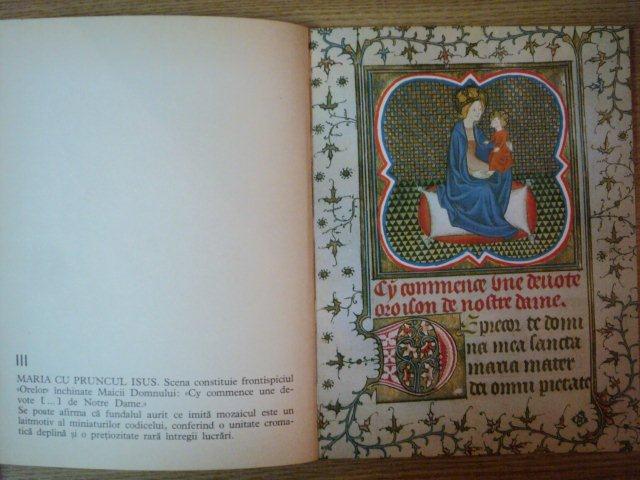 III
MARIA CU PRUNCUL ISUS. Scena constituie frontispiciul
«Orelor» închinate Maicii Domnului: «Cy commence une de-
vote [...] de Notre Dame.»
Se poate afirma că fundalul aurit ce imită mozaicul este un
laitmotiv al miniaturilor codicelui, conferind o unitate croma-
tică deplină și o prețiozitate rară întregii lucrări.
Cy commence une deuote
oroison de nostre dame.
Deprecor te domi
na mea sancta
maria mater
dei omni pietate